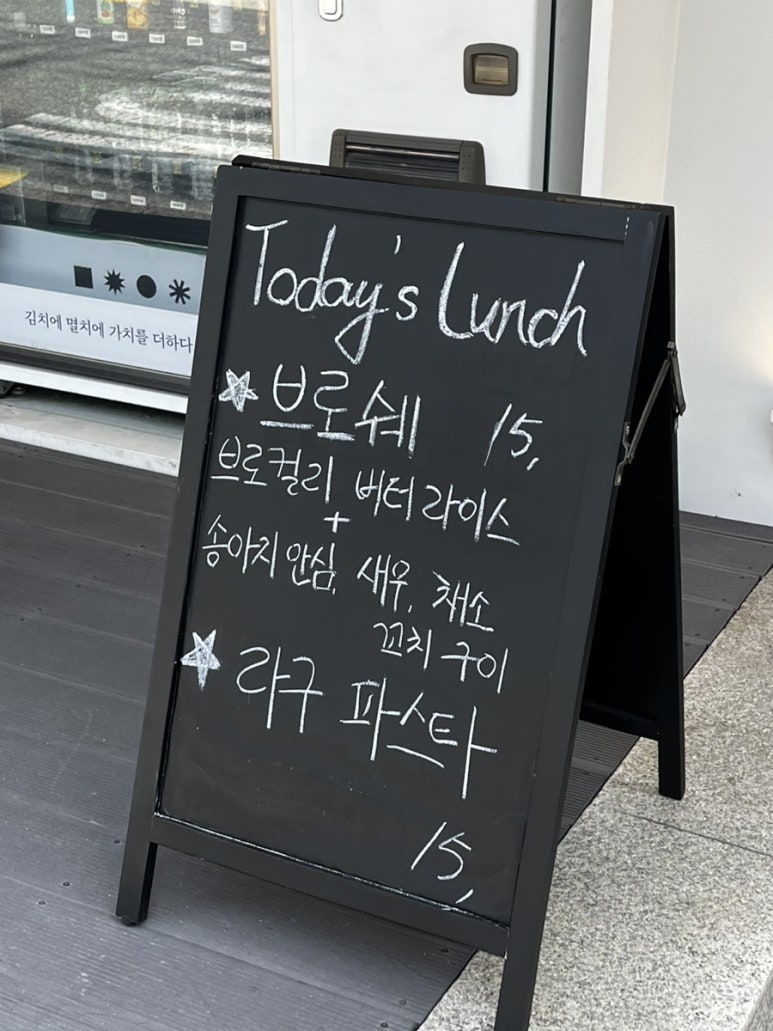 Today's Lunch
브로쉐 15,
브로컬리 버터라이스
+
송아지 안심, 새우, 채소
꼬치 구이
라구 파스타
15,
김치에 멸치에 가치를 더하다